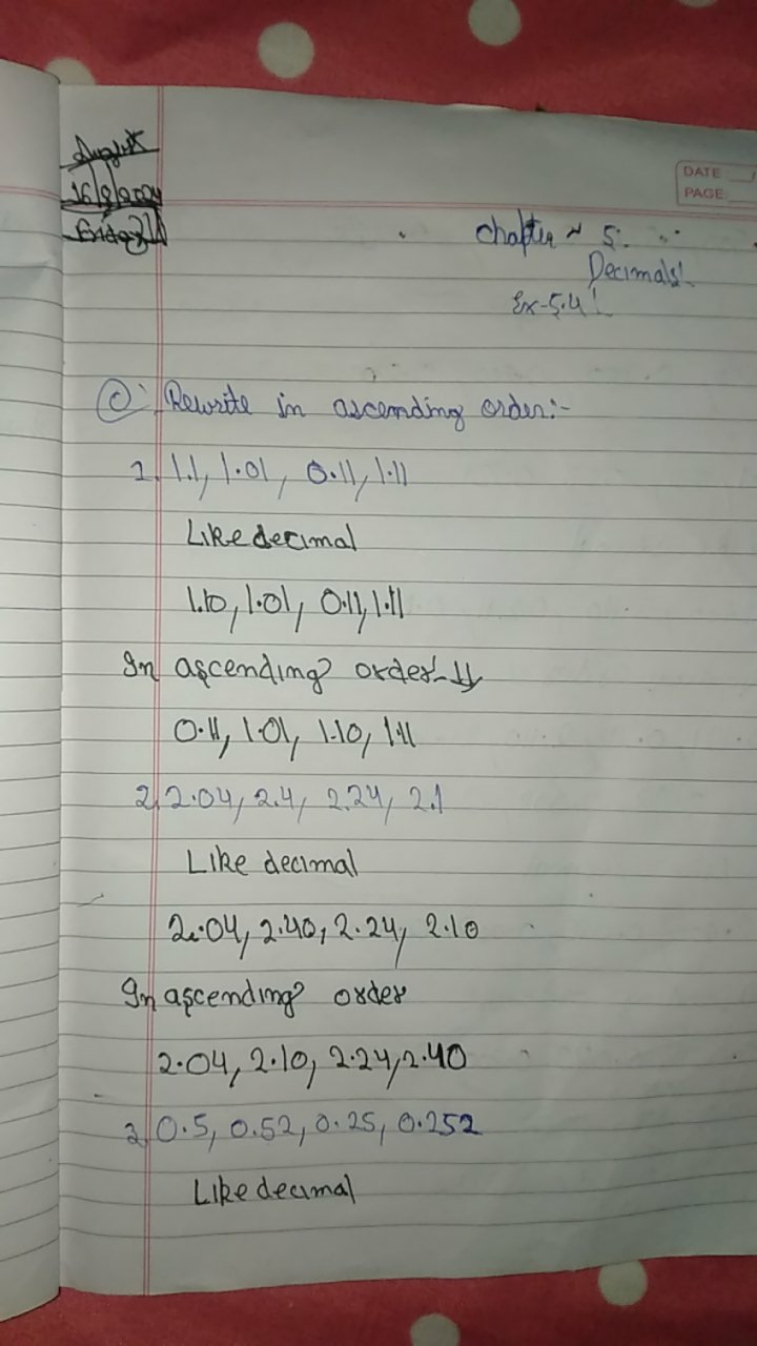 August
16/8/2024
Friday
DATE
PAGE
Chapter ~ 5:
Decimals!
Ex-5.4!
C: Rewrite in ascending order:-
1. 1.1, 1.01, 0.11, 1.11
Like decimal
1.10, 1.01, 0.11, 1.11
In ascending order
0.11, 1.01, 1.10, 1.11
2. 2.04, 2.4, 2.24, 2.1
Like decimal
2.04, 2.40, 2.24, 2.10
In ascending order
2.04, 2.10, 2.24, 2.40
3. 0.5, 0.52, 0.25, 0.252
Like decimal